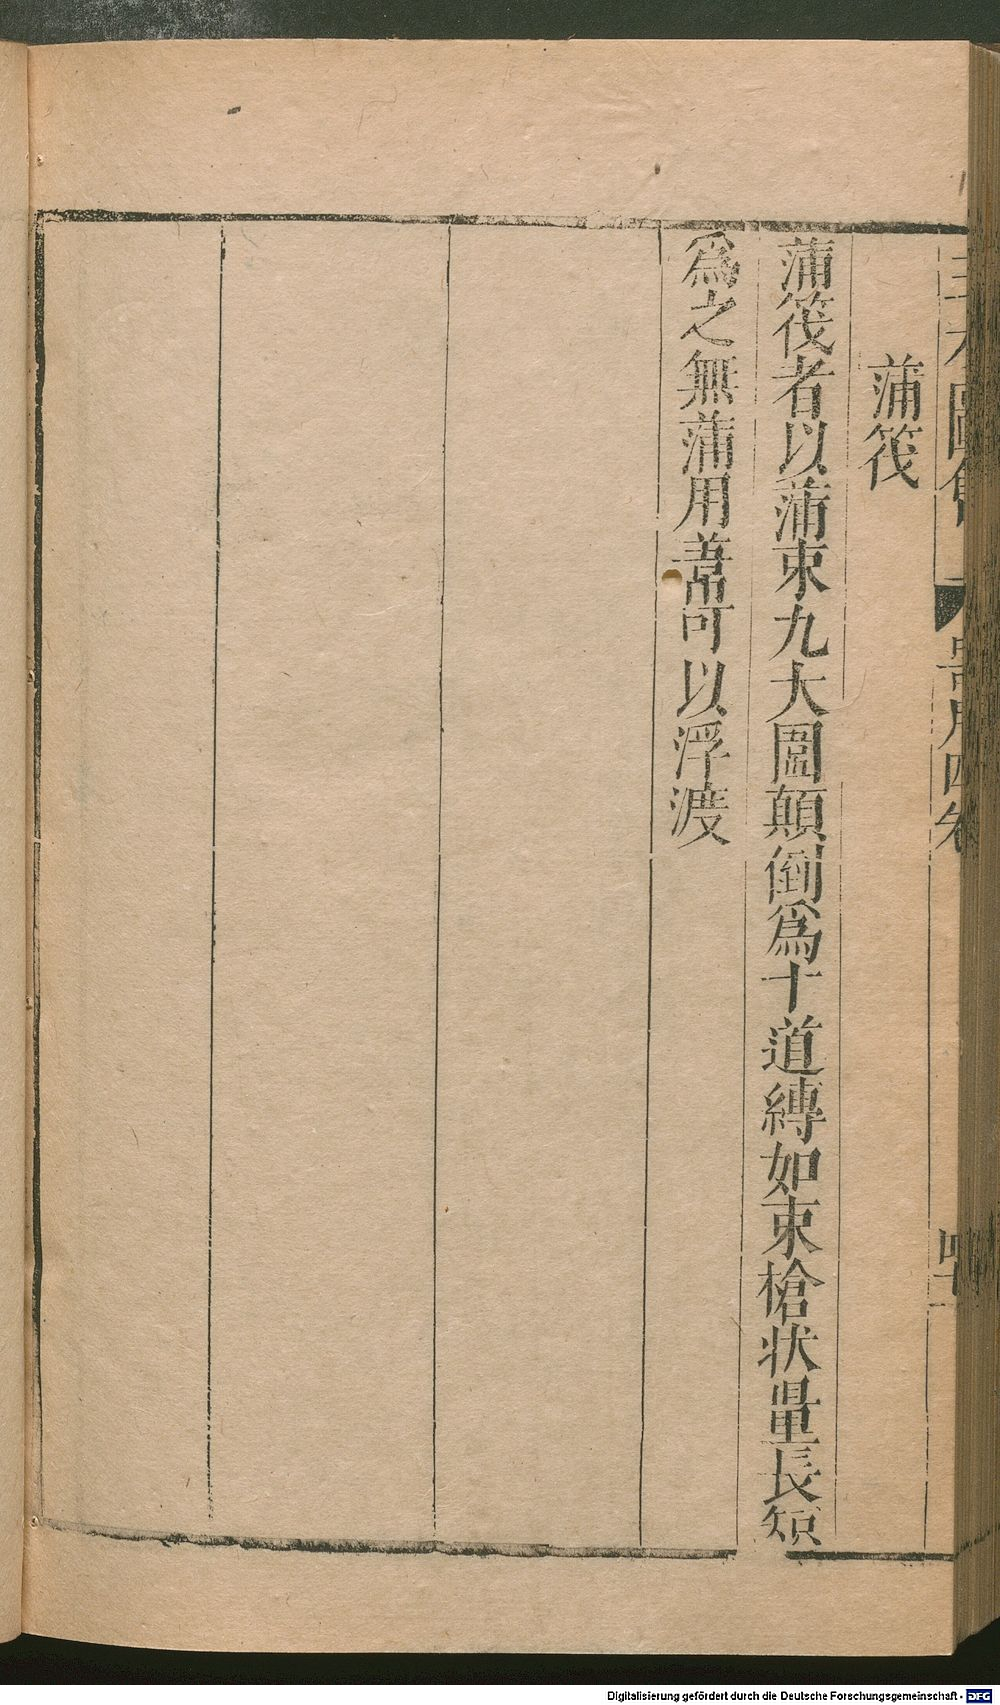 三才圖會
器用四卷
蒲筏
蒲筏者以蒲束九大圍顛倒爲十道縛如束槍状量長短
爲之無蒲用葦可以浮渡
Digitalisierung gefördert durch die Deutsche Forschungsgemeinschaft - DFG